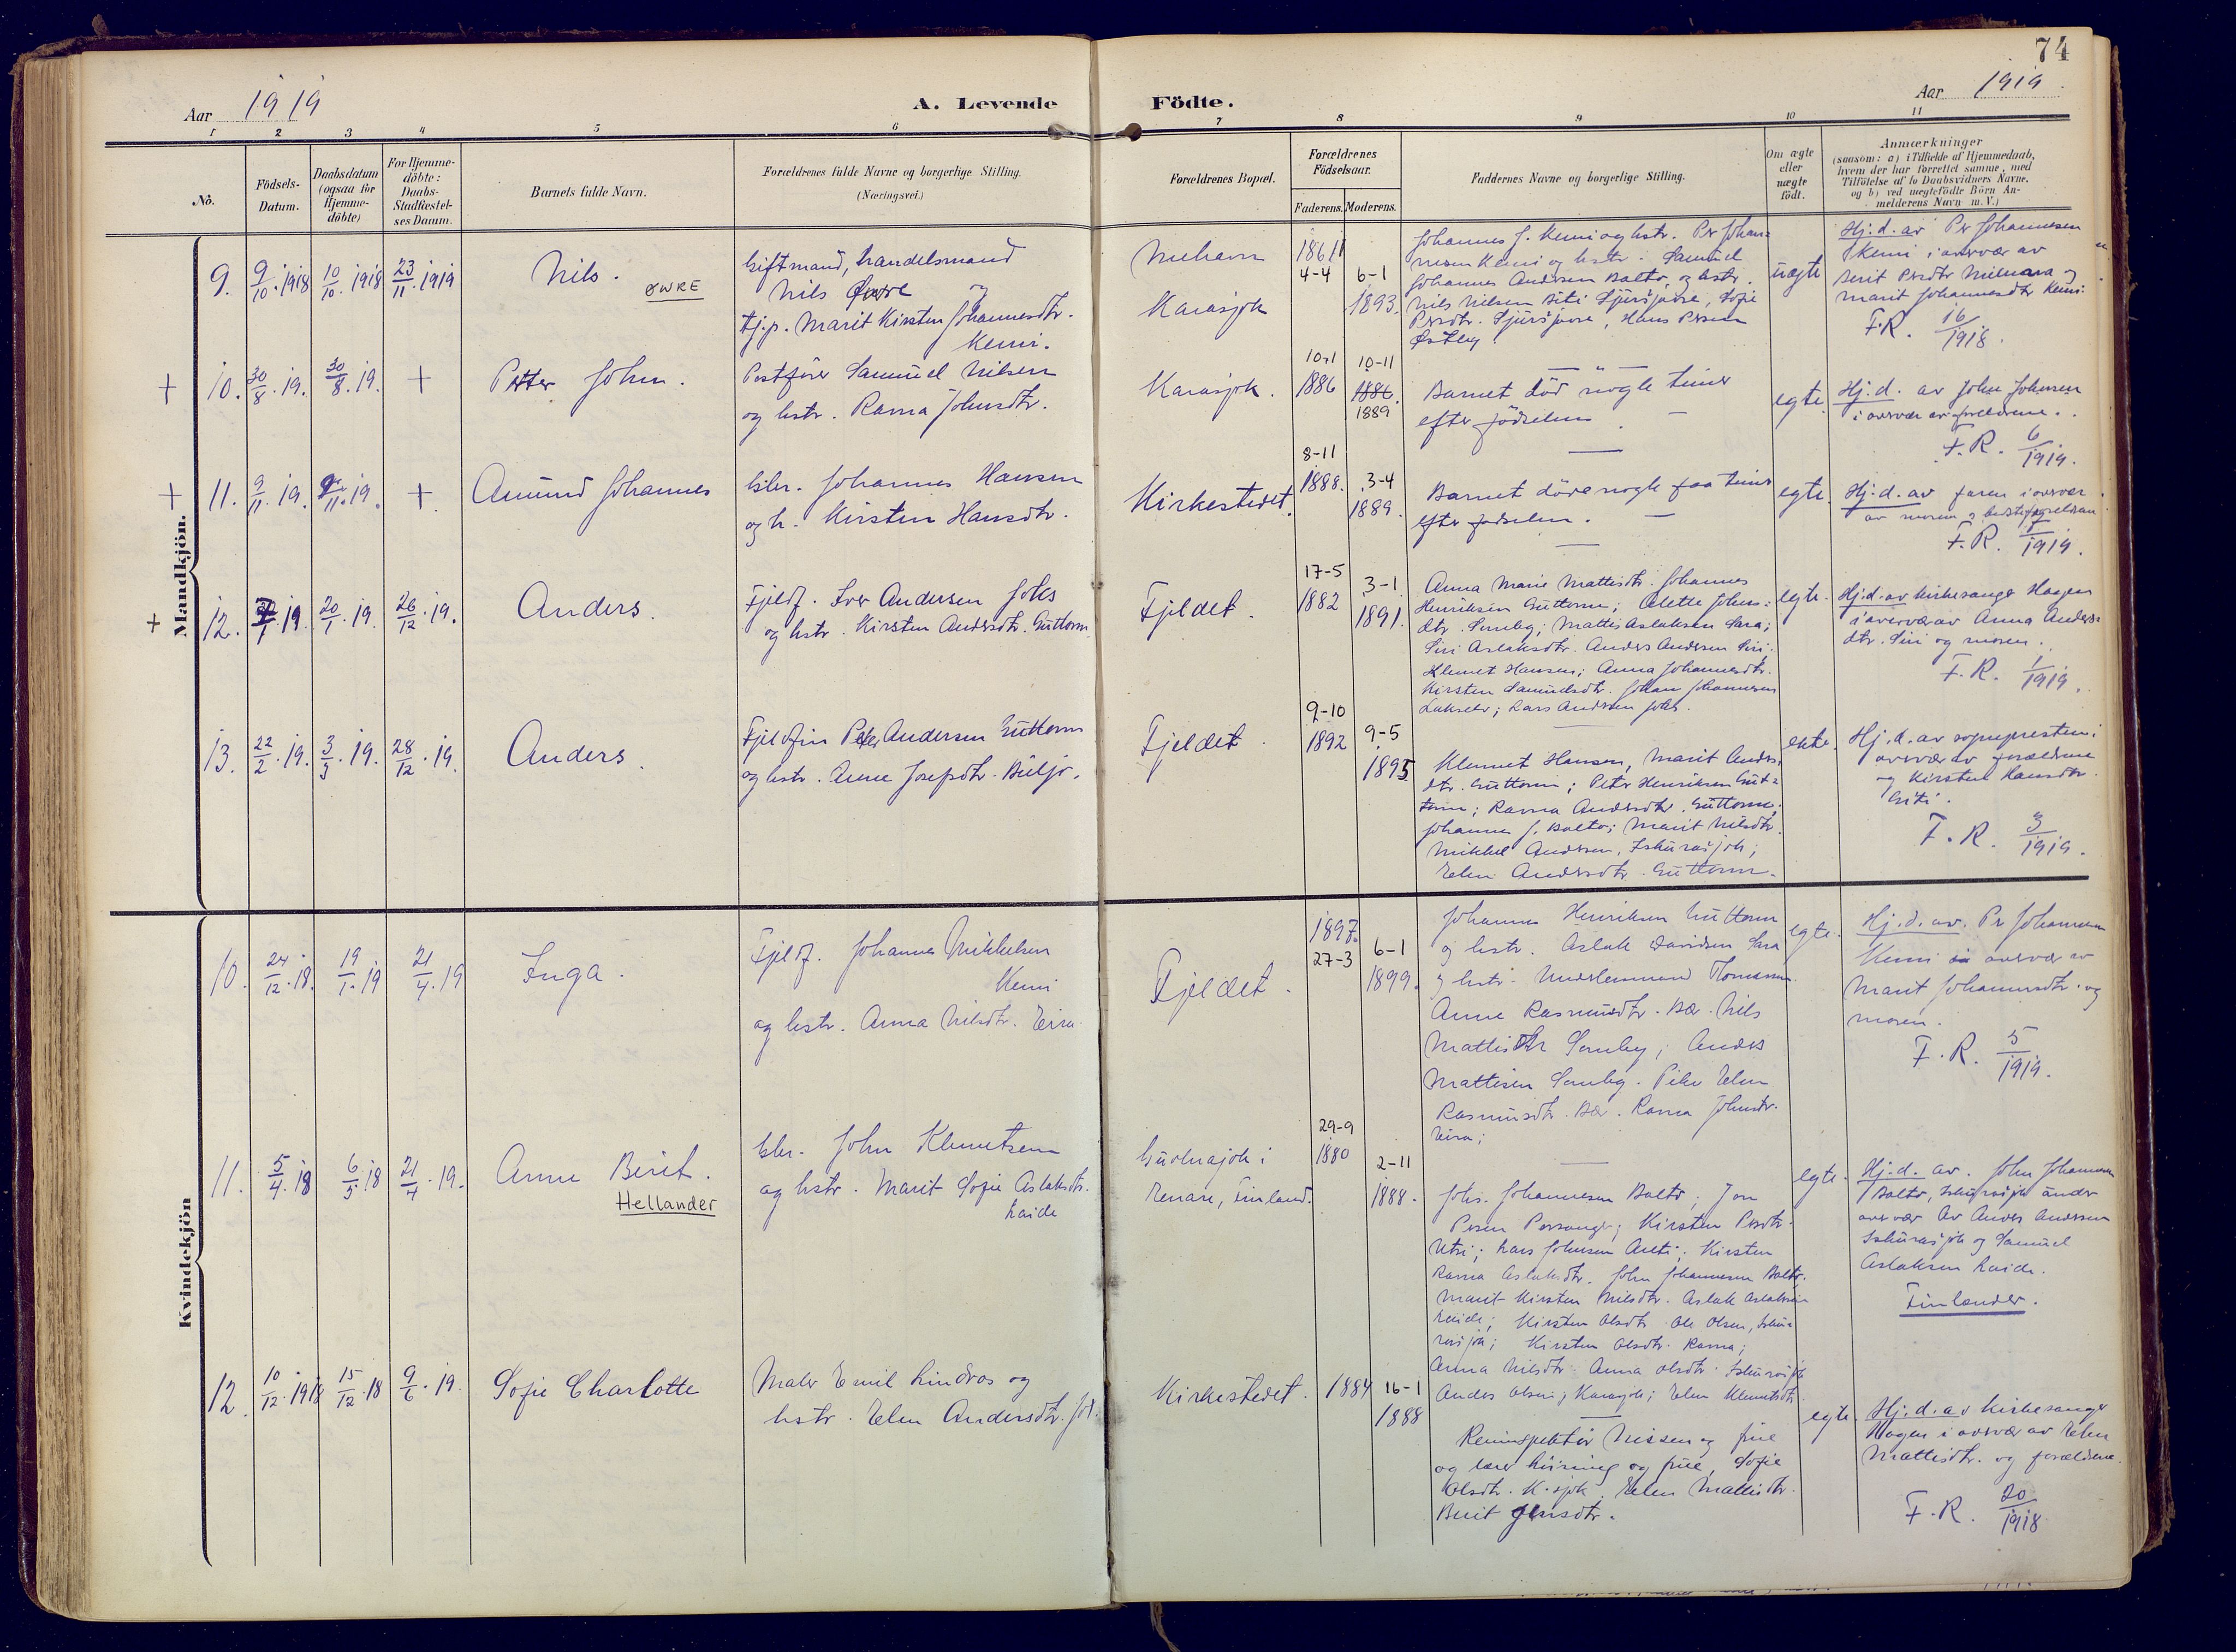 74
Aar 1919
A. Levende Födte.
Aar 1919
1 2 3 4 5 6 7 8 9 10 11
No.
Födsels-
Datum.
Daabsdatum
(ogsaa for
Hjemme-
döbte)
For Hjemme-
döbte:
Daabs-
Stadfæstel-
ses Datum.
Barnets fulde Navn.
Forældrenes fulde Navne og borgerlige Stilling.
(Næringsvei.)
Forældrenes Bopæl.
Forældrenes
Födselsaar.
Faderens. Moderens.
Faddernes Navne og borgerlige Stilling.
Om ægte
eller
uægte
födt.
Anmærkninger
(saasom: a) i Tilfælde af Hjemmedaab,
hvem der har forrettet samme, med
Tilföielse af to Daabsvidners Navne.
og b) ved uægtefödte Börn An-
melderens Navn m. V.)
Mandkjön.
9.
9/10. 1918
10/10. 1918
23/11. 1919
Nils.
ØWRE
Giftmand, handelsmand
Nils Øwre og
tj.p. Marit Kirsten Johannesdtr.
Kemi.
Mehavn
Karasjok
1861
4-4
6-1
1893.
Johannes J. Kemi og hstr. Per Johan=
nesen Kemi og hstr. Samuel
Johannes Andersen Balto, og hstr.
Nils Nilsen Siri Sjursjavre, Sofie
Persdtr. Sjursjavre, Hans Persen
Østby.
uægte
Hj. d. av Per Johannesen
Kemi i overvær av
Berit Persdtr og
Marit Johannesdtr Kemi.
F.R. 16/1918.
+ 10.
30/8. 19.
30/8. 19.
+
Petter John.
Postfører Samuel Nilsen
og hstr. Ravna Johnsdtr.
Karasjok.
10-1
1886
10-11
1886.
1889
Barnet död nogle timer
efter födselen.
egte.
Hj. d. av John Johnsen
i overvær av forældrene.
F.R. 6/1919.
+ 11.
9/11. 19.
9/11. 19.
+.
Amund Johannes
Gbr. Johannes Hansen
og h. Kirsten Hansdtr.
Kirkestedet.
8-11
1888.
3-4
1889.
Barnet döde nogle faa timer
efter födselen.
egte.
Hj. d. av faren i overvær
av moren og bedsteforældrene
F.R. 7/1919.
+ 12.
1. 19
20/1. 19.
26/12. 19.
Anders.
Fjeldf. Iver Andersen Joks
og hstr. Kirsten Andersdtr. Guttorm
Fjeldet.
17-5
1882
3-1
1891.
Anna Marie Mattisdtr. Johannes
Henriksen Guttorm; Alette Johns=
dtr. Somby; Mattis Aslaksen Sara;
Siri Aslaksdtr. Anders Andersen Siri.
Klemet Hansen; Anna Johannesdtr.
Kirsten Samuelsdtr. Johan Johannesen
Lakselv; Lars Andersen Joks.
egte.
Hj. d. av kirkesanger Haagen
i overvær av Anna Anders=
dtr. Siri og moren.
F.R. 1/1919.
13.
22/2. 19.
3/3. 19.
28/12. 19.
Anders.
Fjeldfin Peter Andersen Guttorm
og hstr. Anne Josepsdtr. Buljo.
Fjeldet.
9-10
1892
9-5
1895
Klemet Hansen, Marit Anders
dtr. Guttorm; Peter Henriksen Gut=
torm; Ravna Andersdtr. Guttorm.
Johannes J. Balto; Marit Nilsdtr.
Mikkel Andersen, Iskurasjok;
Elen Andersdtr. Guttorm.
ekte.
Hj. d. av sognepresten i
overvær av forældrene
og Kirsten Hansdtr.
F.R. 3/1919.
Kvindekjön
10.
24/12. 18.
19/1. 19
21/4. 19
Inga.
Fjeldf. Johannes Mikkelsen
Kemi
og hstr. Anna Nilsdtr. Eira.
Fjeldet.
1897.
27-3
6-1
1899.
Johannes Henriksen Guttorm
og hstr. Aslak Davidsen Sara
og hstr. Thomassen.
Anne Rasmusdtr. Bær. Nils
Mattisdtr Somby; Anders
Mattisen Somby. Elen
Rasmusdtr. Bær. Ravna Johnsdtr.
Eira;
egte.
Hj. d. av. Per Johannesen
Kemi i overvær av
Marit Johannesdtr. og
moren.
F.R. 5/1919.
11.
5/4. 18
6/5. 18
21/4. 19.
Anne Berit.
Hellander
Gbr. John Klemetsen
og hstr. Marit Sofie Aslaksdtr.
Laide
i
Enare, Finland.
29-9
1880
2-11
1888.
Johs. Johannesen Balto; Jon
Persen Porsanger; Kirsten Persdtr.
Utsi; Lars Johnsen Anti; Kirsten
Ravna Aslaksdtr. John Johannesen Balto.
Marit Kirsten Nilsdtr. Aslak Aslaksen
Laide; Kirsten Olsdtr. Ole Olsen, Isku=
rasjok; Kirsten Olsdtr. Ravna;
Anna Nilsdtr. Anna Olsdtr. Iskurasjok
Anders Olsen, Karasjok; Elen Klemetsdtr.
egte.
Hj. d. av. John Johannesen
Balto, Iskurasjok under
overvær av Anders Andersen
Iskurasjok og Samuel
Aslaksen Laide.
Finlænder.
12.
10/12. 1918
15/12. 18
9/6. 19.
Sofie Charlotte
Maler Emil Lindros og
hstr. Elen Andersdtr. Jok.
Kirkestedet.
1884
16-1
1888
Reninspektør Nissen og frue
og lærer Husning og frue, Sofie
Olsdtr. K.sjok. Elen Mattisdtr.
Berit Jensdtr.
egte.
Hj. d. av kirkesanger
Hagen i overvær av Elen
Mattisdtr. og forældrene.
F.R. 20/1918